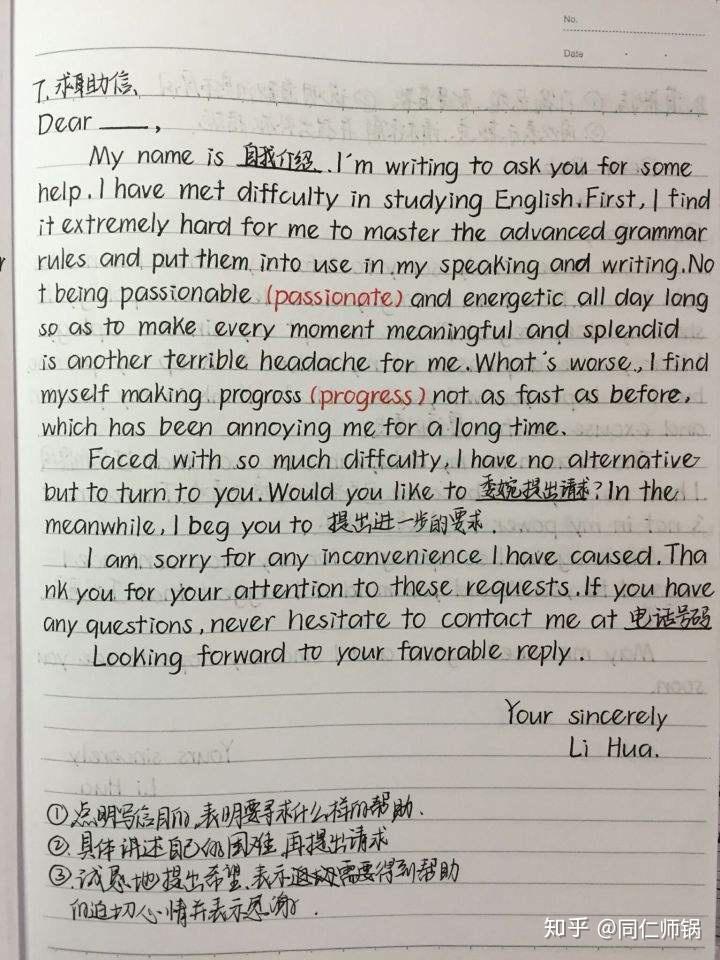 No.
Date
7. 求助信、
Dear ____,
My name is 自我介绍. I'm writing to ask you for some
help. I have met diffculty in studying English. First, I find
it extremely hard for me to master the advanced grammar
rules and put them into use in my speaking and writing. No
t being passionable (passionate) and energetic all day long
so as to make every moment meaningful and splendid
is another terrible headache for me. What's worse, I find
myself making progross (progress) not as fast as before,
which has been annoying me for a long time.
Faced with so much diffculty, I have no alternative
but to turn to you. Would you like to 委婉提出请求? In the
meanwhile, I beg you to 提出进一步的要求.
I am sorry for any inconvenience I have caused. Tha
nk you for your attention to these requests. If you have
any questions, never hesitate to contact me at 电话号码
Looking forward to your favorable reply.
Your sincerely
Li Hua.
①.点明写信目的,表明要寻求什么样的帮助.
②.具体讲述自己的困难,再提出请求
③.诚恳地提出希望,表示迫切需要得到帮助
的迫切心情并表示感谢.
知乎 @同仁师锅